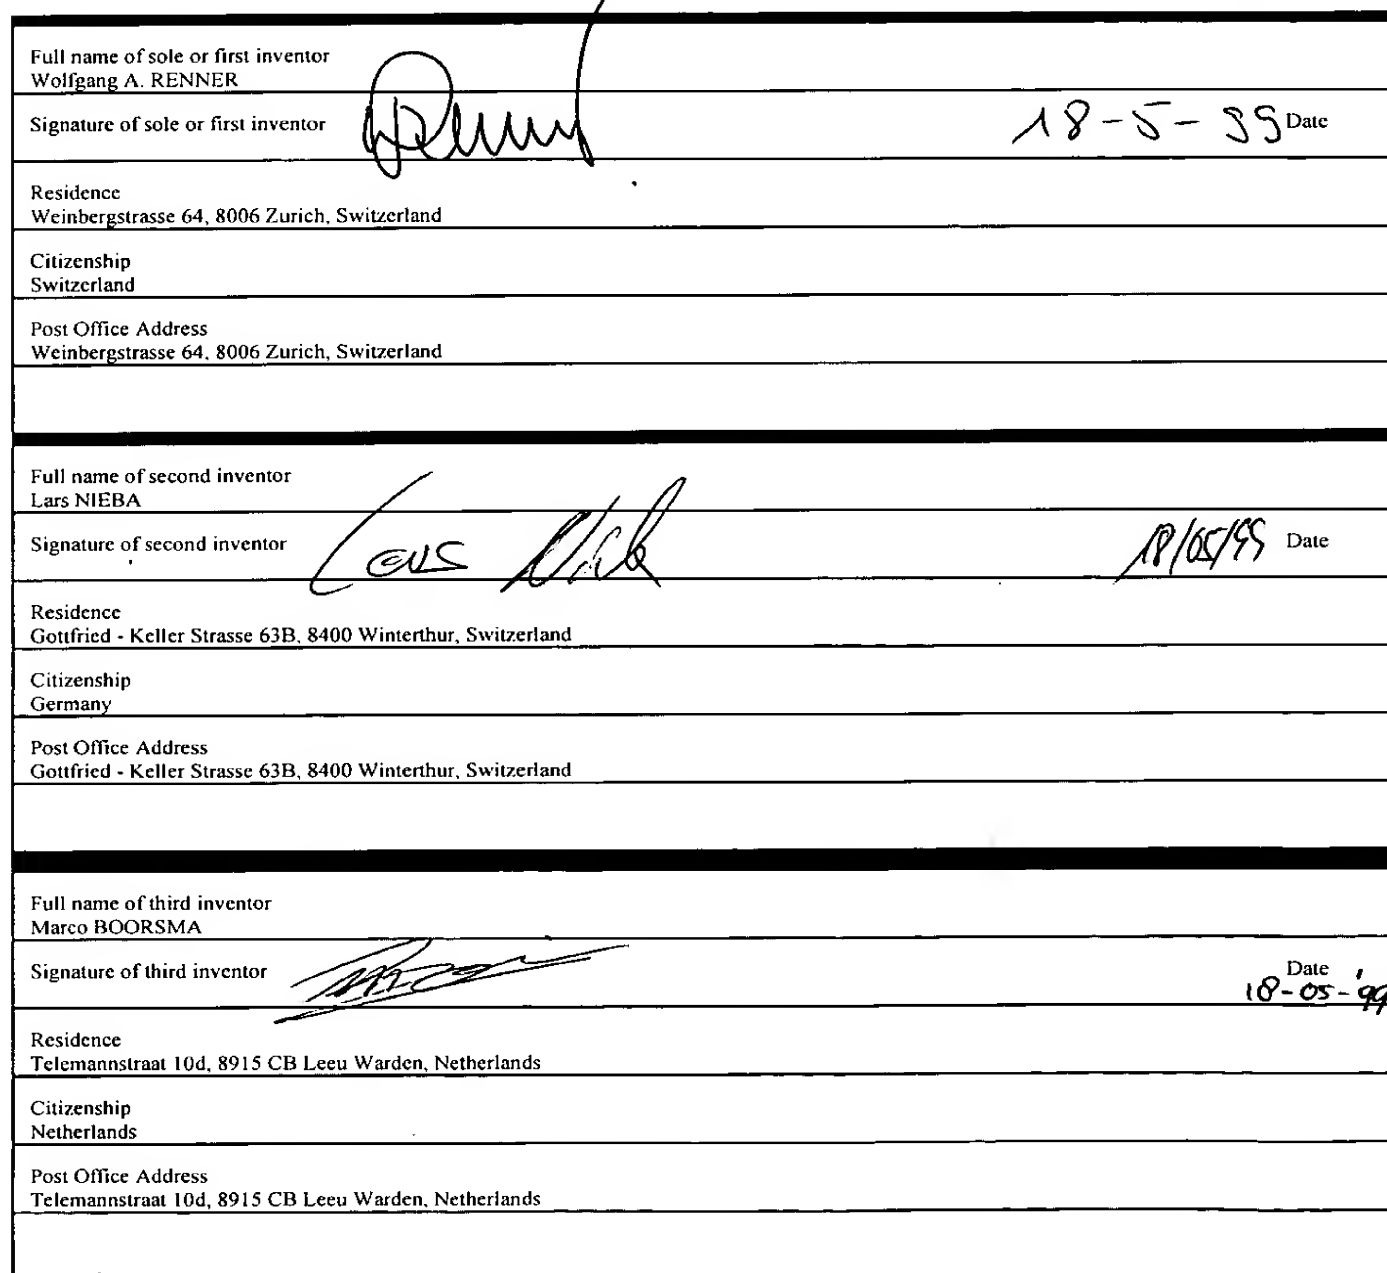 Full name of sole or first inventor
Wolfgang A. RENNER
Signature of sole or first inventor 18-5-99 Date
Residence
Weinbergstrasse 64, 8006 Zurich, Switzerland
Citizenship
Switzerland
Post Office Address
Weinbergstrasse 64, 8006 Zurich, Switzerland
Full name of second inventor
Lars NIEBA
Signature of second inventor Lars 18/05/99 Date
Residence
Gottfried - Keller Strasse 63B, 8400 Winterthur, Switzerland
Citizenship
Germany
Post Office Address
Gottfried - Keller Strasse 63B, 8400 Winterthur, Switzerland
Full name of third inventor
Marco BOORSMA
Signature of third inventor Date
18-05-'99
Residence
Telemannstraat 10d, 8915 CB Leeu Warden, Netherlands
Citizenship
Netherlands
Post Office Address
Telemannstraat 10d, 8915 CB Leeu Warden, Netherlands